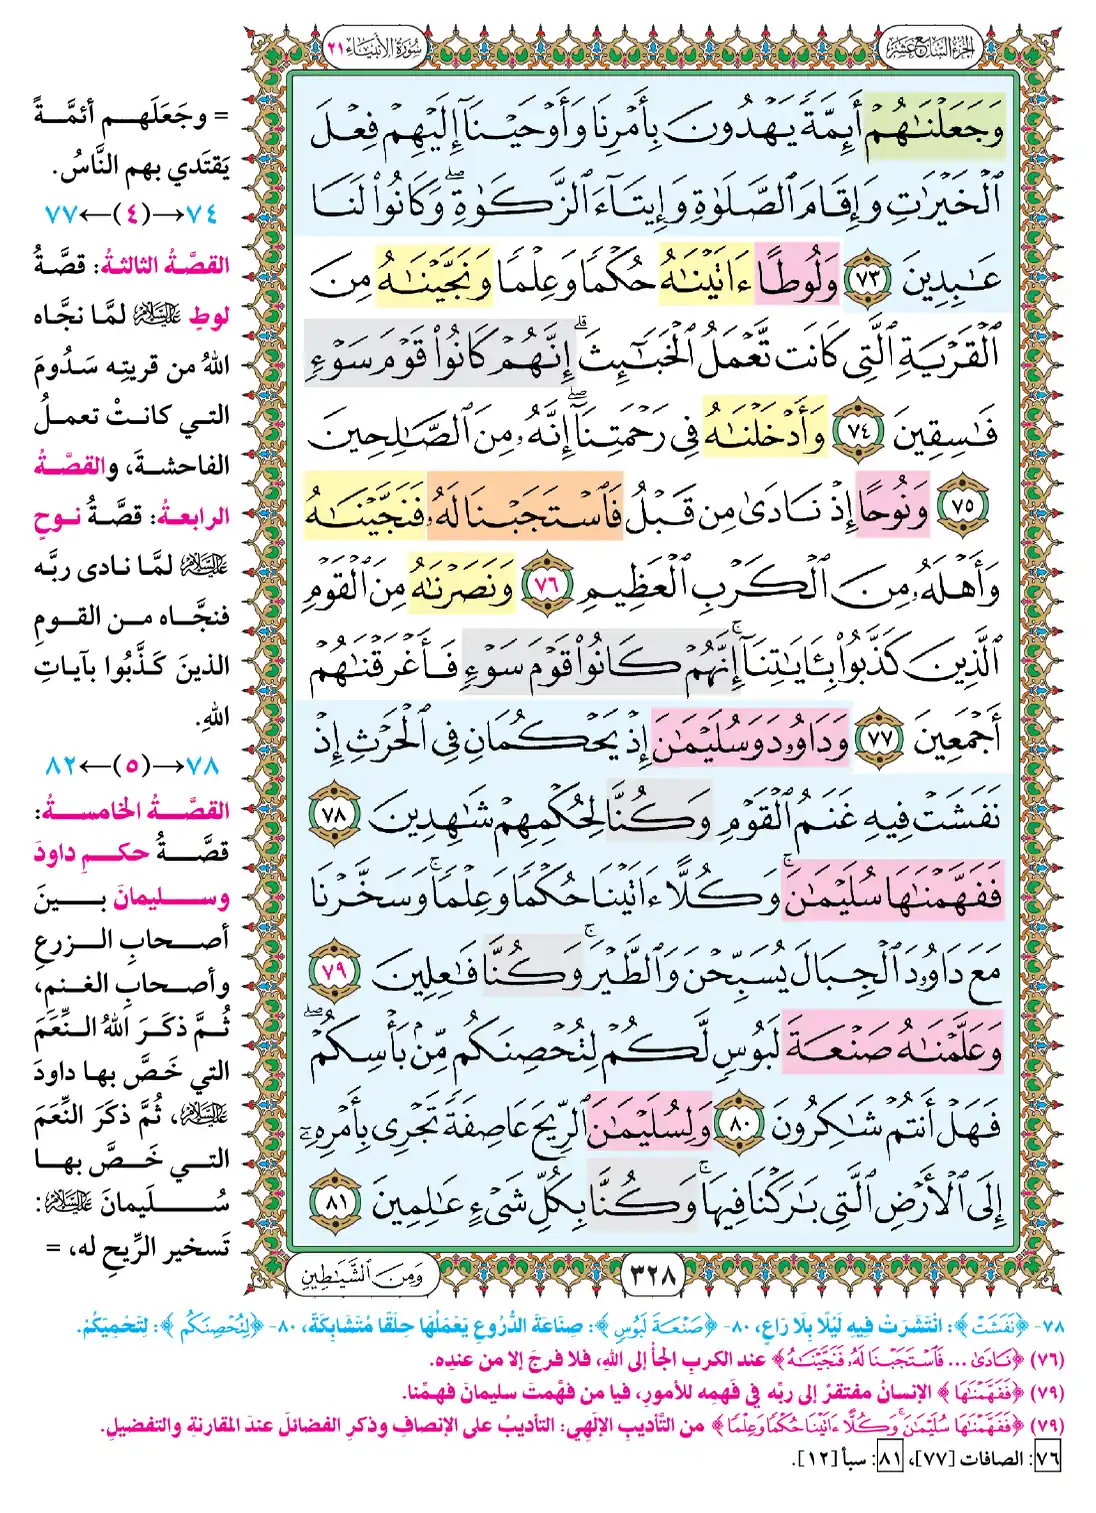 الجزء السابع عشر
سورة الأنبياء ٢١
وَجَعَلْنَٰهُمْ أَئِمَّةً يَهْدُونَ بِأَمْرِنَا وَأَوْحَيْنَآ إِلَيْهِمْ فِعْلَ
ٱلْخَيْرَٰتِ وَإِقَامَ ٱلصَّلَوٰةِ وَإِيتَآءَ ٱلزَّكَوٰةِۖ وَكَانُوا۟ لَنَا
عَٰبِدِينَ ٧٣ وَلُوطًا ءَاتَيْنَٰهُ حُكْمًا وَعِلْمًا وَنَجَّيْنَٰهُ مِنَ
ٱلْقَرْيَةِ ٱلَّتِى كَانَت تَّعْمَلُ ٱلْخَبَٰٓئِثَۗ إِنَّهُمْ كَانُوا۟ قَوْمَ سَوْءٍ
فَٰسِقِينَ ٧٤ وَأَدْخَلْنَٰهُ فِى رَحْمَتِنَآۖ إِنَّهُۥ مِنَ ٱلصَّٰلِحِينَ
٧٥ وَنُوحًا إِذْ نَادَىٰ مِن قَبْلُ فَٱسْتَجَبْنَا لَهُۥ فَنَجَّيْنَٰهُ
وَأَهْلَهُۥ مِنَ ٱلْكَرْبِ ٱلْعَظِيمِ ٧٦ وَنَصَرْنَٰهُ مِنَ ٱلْقَوْمِ
ٱلَّذِينَ كَذَّبُوا۟ بِـَٔايَٰتِنَآۚ إِنَّهُمْ كَانُوا۟ قَوْمَ سَوْءٍ فَأَغْرَقْنَٰهُمْ
أَجْمَعِينَ ٧٧ وَدَاوُۥدَ وَسُلَيْمَٰنَ إِذْ يَحْكُمَانِ فِى ٱلْحَرْثِ إِذْ
نَفَشَتْ فِيهِ غَنَمُ ٱلْقَوْمِ وَكُنَّا لِحُكْمِهِمْ شَٰهِدِينَ ٧٨
فَفَهَّمْنَٰهَا سُلَيْمَٰنَۚ وَكُلًّا ءَاتَيْنَا حُكْمًا وَعِلْمًاۚ وَسَخَّرْنَا
مَعَ دَاوُۥدَ ٱلْجِبَالَ يُسَبِّحْنَ وَٱلطَّيْرَۚ وَكُنَّا فَٰعِلِينَ ٧٩
وَعَلَّمْنَٰهُ صَنْعَةَ لَبُوسٍ لَّكُمْ لِتُحْصِنَكُم مِّنۢ بَأْسِكُمْۖ
فَهَلْ أَنتُمْ شَٰكِرُونَ ٨٠ وَلِسُلَيْمَٰنَ ٱلرِّيحَ عَاصِفَةً تَجْرِى بِأَمْرِهِۦٓ
إِلَى ٱلْأَرْضِ ٱلَّتِى بَٰرَكْنَا فِيهَاۚ وَكُنَّا بِكُلِّ شَىْءٍ عَٰلِمِينَ ٨١
٣٢٨
وَمِنَ ٱلشَّيَٰطِينِ
= وجَعَلَهم أئمَّةً
يَقتَدي بهم النَّاسُ.
٧٤→(٤)←٧٧
القصَّةُ الثالثةُ: قصَّةُ
لوطٍ عليه السلام لمَّا نجَّاه
اللهُ من قريتِه سَدُومَ
التي كانتْ تعملُ
الفاحشةَ، والقصَّةُ
الرابعةُ: قصَّةُ نوحٍ
عليه السلام لمَّا نادى ربَّه
فنجَّاه من القومِ
الذينَ كَذَّبُوا بآياتِ
اللهِ.
٧٨→(٥)←٨٢
القصَّةُ الخامسةُ:
قصَّةُ حكمِ داودَ
وسليمانَ بينَ
أصحابِ الزرعِ
وأصحابِ الغنمِ،
ثُمَّ ذكَرَ اللهُ النِّعَمَ
التي خَصَّ بها داودَ
عليه السلام، ثُمَّ ذكَرَ النِّعَمَ
التي خَصَّ بها
سُلَيمانَ عليه السلام:
تَسخير الرِّيحِ له، =
٧٨- ﴿نَفَشَتْ﴾: انْتَشَرَتْ فِيهِ لَيْلًا بِلَا رَاعٍ، ٨٠- ﴿صَنْعَةَ لَبُوسٍ﴾: صِنَاعَةَ الدُّرُوعِ يَعْمَلُهَا حِلَقًا مُتَشَابِكَةً، ٨٠- ﴿لِتُحْصِنَكُم﴾: لِتَحْمِيَكُمْ.
(٧٦) ﴿نَادَىٰ ... فَٱسْتَجَبْنَا لَهُۥ فَنَجَّيْنَٰهُ﴾ عند الكربِ الجأْ إلى اللهِ، فلا فرجَ إلا من عندِه.
(٧٩) ﴿فَفَهَّمْنَٰهَا﴾ الإنسانُ مفتقرٌ إلى ربِّه في فَهمِه للأمورِ، فيا من فهَّمتَ سليمانَ فهِّمنا.
(٧٩) ﴿فَفَهَّمْنَٰهَا سُلَيْمَٰنَۚ وَكُلًّا ءَاتَيْنَا حُكْمًا وَعِلْمًا﴾ من التَّأديبِ الإلهِي: التأديبُ على الإنصافِ وذكرِ الفضائلَ عندَ المقارنةِ والتفضيلِ.
٧٦: الصافات [٧٧]، ٨١: سبأ [١٢].